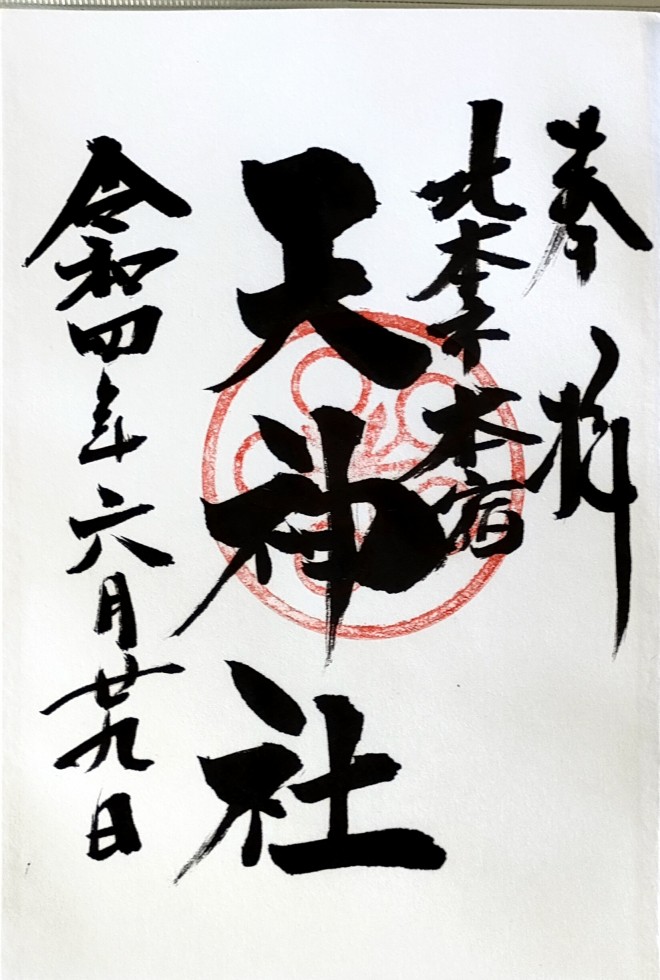 奉拝
北本本宿
天神社
令和四年六月廿九日